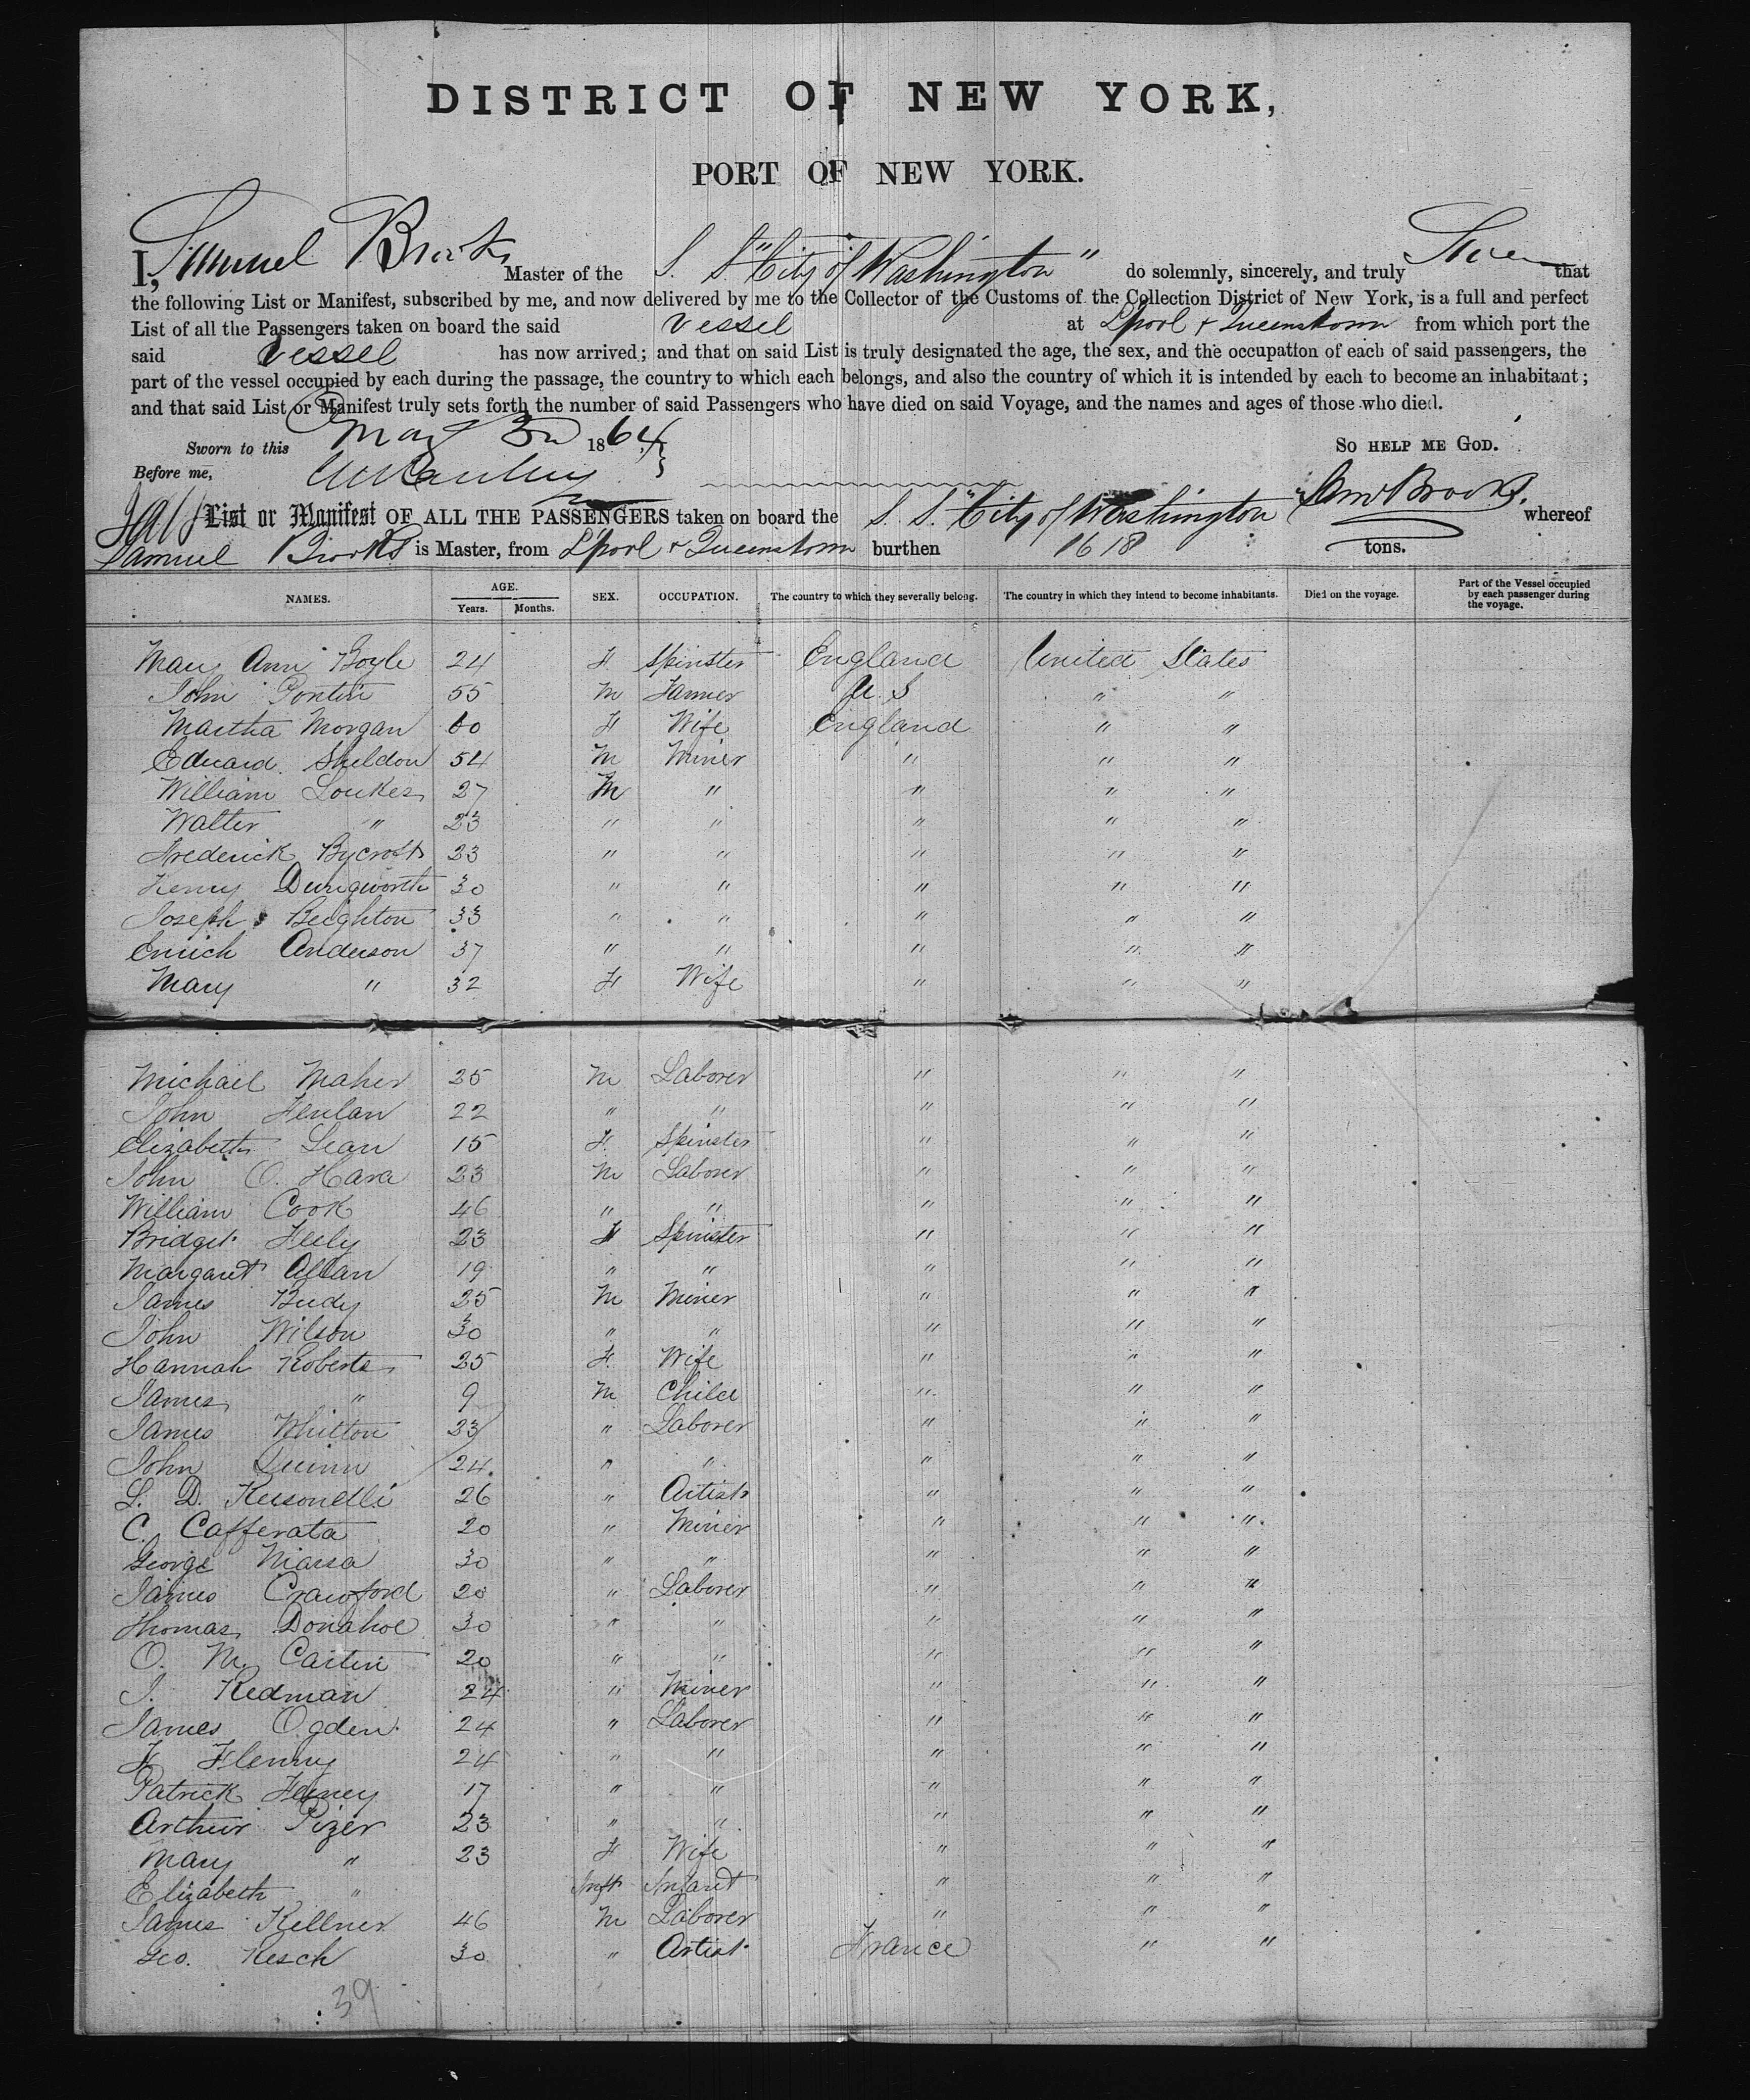 DISTRICT OF NEW YORK,
PORT OF NEW YORK.
I, Samuel Brooks Master of the S. S. "City of Washington" do solemnly, sincerely, and truly Swear that
the following List or Manifest, subscribed by me, and now delivered by me to the Collector of the Customs of the Collection District of New York, is a full and perfect
List of all the Passengers taken on board the said vessel at Lpool & Queenstown from which port the
said vessel has now arrived; and that on said List is truly designated the age, the sex, and the occupation of each of said passengers, the
part of the vessel occupied by each during the passage, the country to which each belongs, and also the country of which it is intended by each to become an inhabitant;
and that said List or Manifest truly sets forth the number of said Passengers who have died on said Voyage, and the names and ages of those who died.
Sworn to this May 3rd 1864 SO HELP ME GOD.
Before me, Saml Brooks.
List or Manifest OF ALL THE PASSENGERS taken on board the S. S. "City of Washington whereof
Samuel Brooks is Master, from Lpool & Queenstown burthen 1618 tons.
NAMES. AGE. Years. Months. SEX. OCCUPATION. The country to which they severally belong. The country in which they intend to become inhabitants. Died on the voyage. Part of the Vessel occupied by each passenger during the voyage.
Mary Ann Boyle 24 F Spinster England United States
John Pontin 55 M Farmer U. S " "
Martha Morgan 60 F Wife England " "
Edward Sheldon 54 M Miner " " "
William Loukes 27 M " " " "
Walter " 23 " " " " "
Frederick Bycroft 23 " " " " "
Henry Dungworth 30 " " " " "
Joseph Beighton 33 " " " " "
Anderson 37 " " " " "
Mary " 32 F Wife " " "
Michael Maher 25 M Laborer " " "
John Fenlan 22 " " " " "
Elizabeth Lean 15 F. Spinster " " "
John O. Hara 23 M Laborer " " "
William Cook 46 " " " " "
Bridget Feely 23 F Spinster " " "
Margaret Allan 19 " " " " "
James 25 M Miner " " "
John Wilson 30 " " " " "
Hannah Roberts 25 F. Wife " " "
James " 9 M Child " " "
James Whitton 23 " Laborer " " "
John Quinn 24. " " " " "
L. D. 26 " Artist " " "
C. Cafferata 20 " Miner " " "
George Niassa 30 " " " " "
James Crawford 20 " Laborer " " "
Thomas Donahoe 30 " " " " "
O. Mc Carten 20 " " " " "
J. Redman 24 " Miner " " "
James Ogden 24 " Laborer " " "
F Flenny 24 " " " " "
Patrick Feeney 17 " " " " "
Arthur Pizer 23 " " " " "
Mary " 23 F Wife " " "
Elizabeth " Inft Infant " " "
James Kellner 46 M Laborer " " "
Geo. Resch 30 " Artist France " "
39